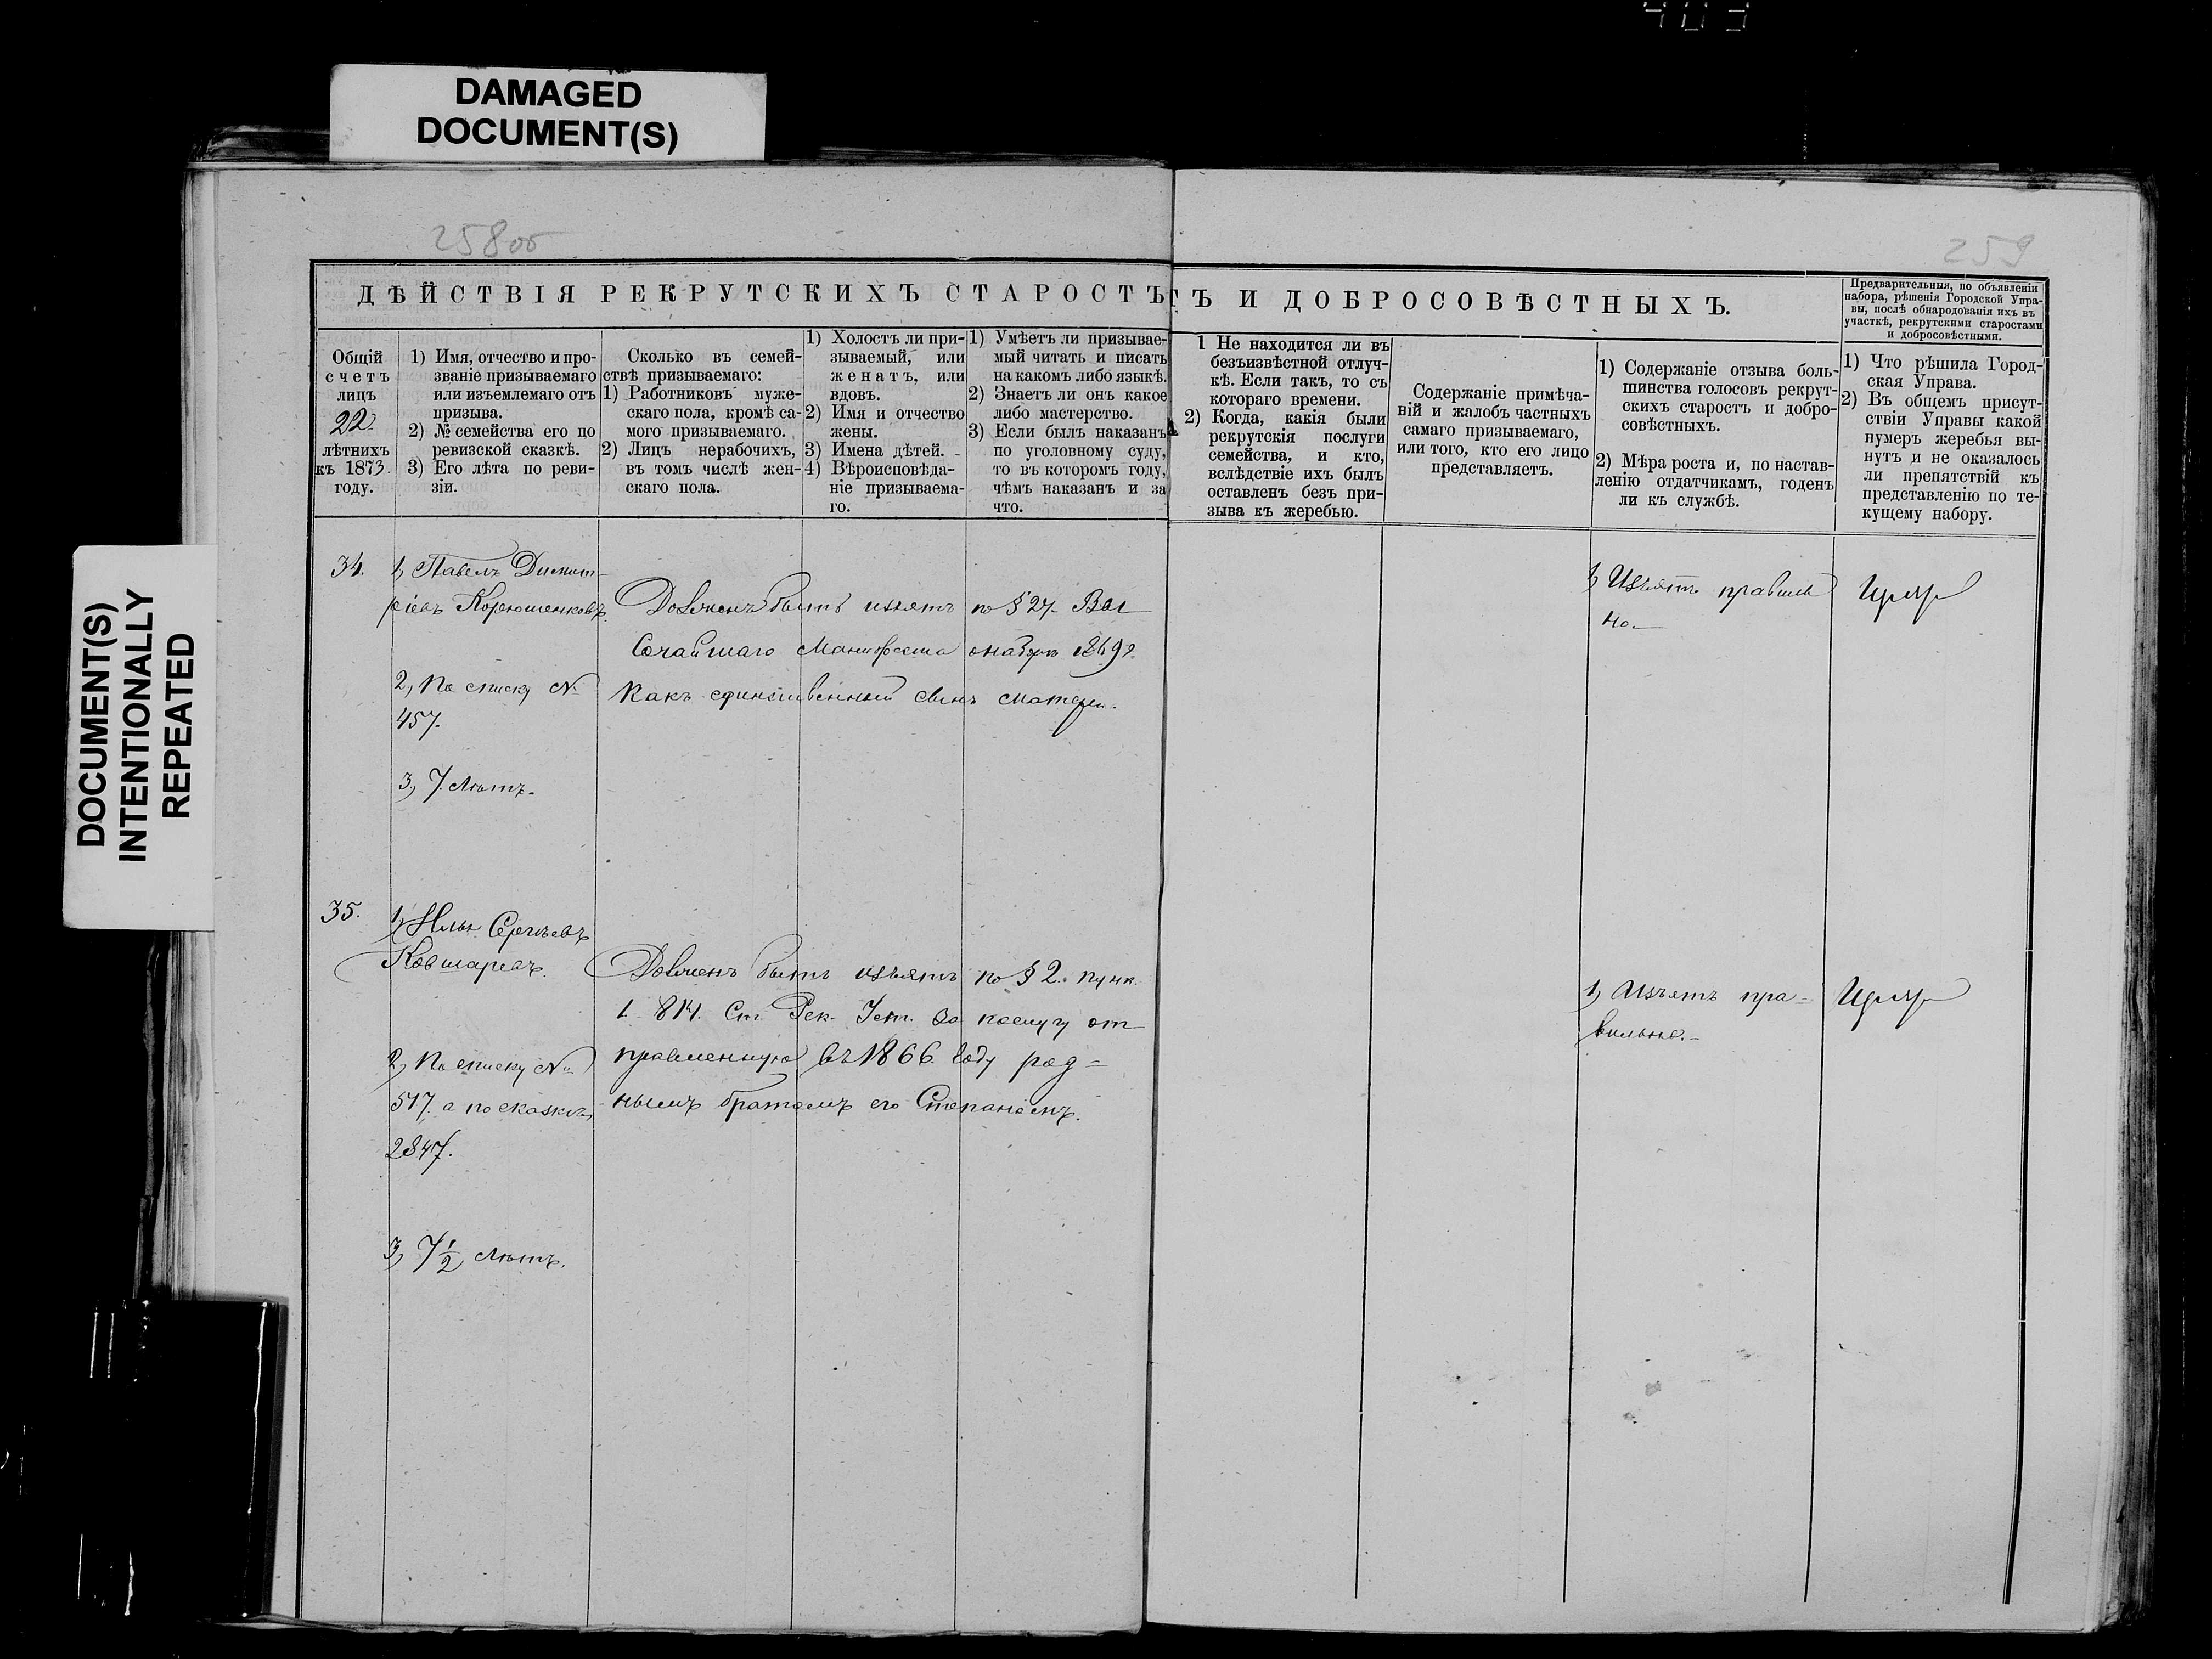 DAMAGED
DOCUMENT(S)
DOCUMENT(S)
INTENTIONALLY
REPEATED
403
258об
259
ДѢЙСТВІЯ РЕКРУТСКИХЪ СТАРОСТЪ
ТЪ И ДОБРОСОВѢСТНЫХЪ.
Предварительныя, по объявленіи
набора, рѣшенія Городской Упра-
вы, послѣ обнародованія ихъ въ
участкѣ, рекрутскими старостами
и добросовѣстными.
Общій
счетъ
лицъ
22
лѣтнихъ
къ 1873.
году.
1) Имя, отчество и про-
званіе призываемаго
или изъемлемаго отъ
призыва.
2) № семейства его по
ревизской сказкѣ.
3) Его лѣта по реви-
зіи.
Сколько въ семей-
ствѣ призываемаго:
1) Работниковъ муже-
скаго пола, кромѣ са-
мого призываемаго.
2) Лицъ нерабочихъ,
въ томъ числѣ жен-
скаго пола.
1) Холостъ ли при-
зываемый, или
женатъ, или
вдовъ.
2) Имя и отчество
жены.
3) Имена дѣтей.
4) Вѣроисповѣда-
ніе призываема-
го.
1) Умѣетъ ли призывае-
мый читать и писать
на какомъ либо языкѣ.
2) Знаетъ ли онъ какое
либо мастерство.
3) Если былъ наказанъ
по уголовному суду,
то въ которомъ году,
чѣмъ наказанъ и за
что.
1 Не находится ли въ
безъизвѣстной отлуч-
кѣ. Если такъ, то съ
котораго времени.
2) Когда, какія были
рекрутскія послуги
семейства, и кто,
вслѣдствіе ихъ былъ
оставленъ безъ при-
зыва къ жеребью.
Содержаніе примѣча-
ній и жалобъ частныхъ
самаго призываемаго,
или того, кто его лицо
представляетъ.
1) Содержаніе отзыва боль-
шинства голосовъ рекрут-
скихъ старостъ и добро-
совѣстныхъ.
2) Мѣра роста и, по настав-
ленію отдатчикамъ, годенъ
ли къ службѣ.
1) Что рѣшила Город-
ская Управа.
2) Въ общемъ присут-
ствіи Управы какой
нумеръ жеребья вы-
нутъ и не оказалось
ли препятствій къ
представленію по те-
кущему набору.
34.
1) Павелъ Димит-
ріевъ Корюшенковъ.
2) По списку №
457.
3) 7. лѣтъ.
Долженъ быть изъятъ по § 27. Вы-
сочайшаго Манифеста о наборѣ 1869 г.
какъ единственный сынъ матери.
1) Изъятъ правиль
но.
35.
1) Илья Сергѣевъ
Ковшаревъ.
2) По списку №
517. а по сказкѣ
2847.
3) 7 1/2 лѣтъ.
Долженъ быть изъятъ по § 2. пунк.
1. 814. Ст. Рек. Уст. за послугу от-
правленную въ 1866. году род=
нымъ братомъ его Степаномъ.
1) Изъятъ пра=
вильно.